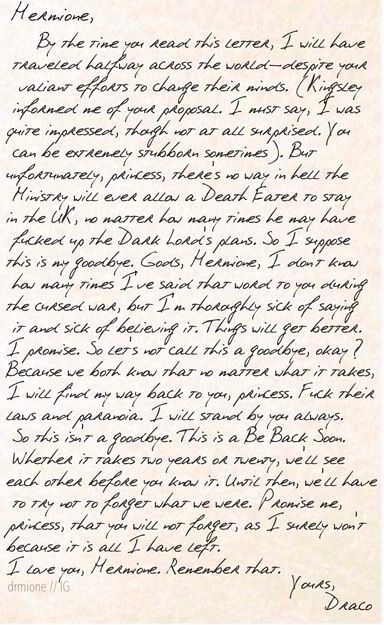 Hermione,
By the time you read this letter, I will have
traveled halfway across the world—despite your
valiant efforts to change their minds. (Kingsley
informed me of your proposal. I must say, I was
quite impressed, though not at all surprised. You
can be extremely stubborn sometimes). But
unfortunately, princess, there's no way in hell the
Ministry will ever allow a Death Eater to stay
in the UK, no matter how many times he may have
fucked up the Dark Lord's plans. So I suppose
this is my goodbye. Gods, Hermione, I don't know
how many times I've said that word to you during
the cursed war, but I'm thoroughly sick of saying
it and sick of believing it. Things will get better.
I promise. So let's not call this a goodbye, okay?
Because we both know that no matter what it takes,
I will find my way back to you, princess. Fuck their
laws and paranoia. I will stand by you always.
So this isn't a goodbye. This is a Be Back Soon.
Whether it takes two years or twenty, we'll see
each other before you know it. Until then, we'll have
to try not to forget what we were. Promise me,
princess, that you will not forget, as I surely won't
because it is all I have left.
I love you, Hermione. Remember that.
drmione // IG
Yours,
Draco